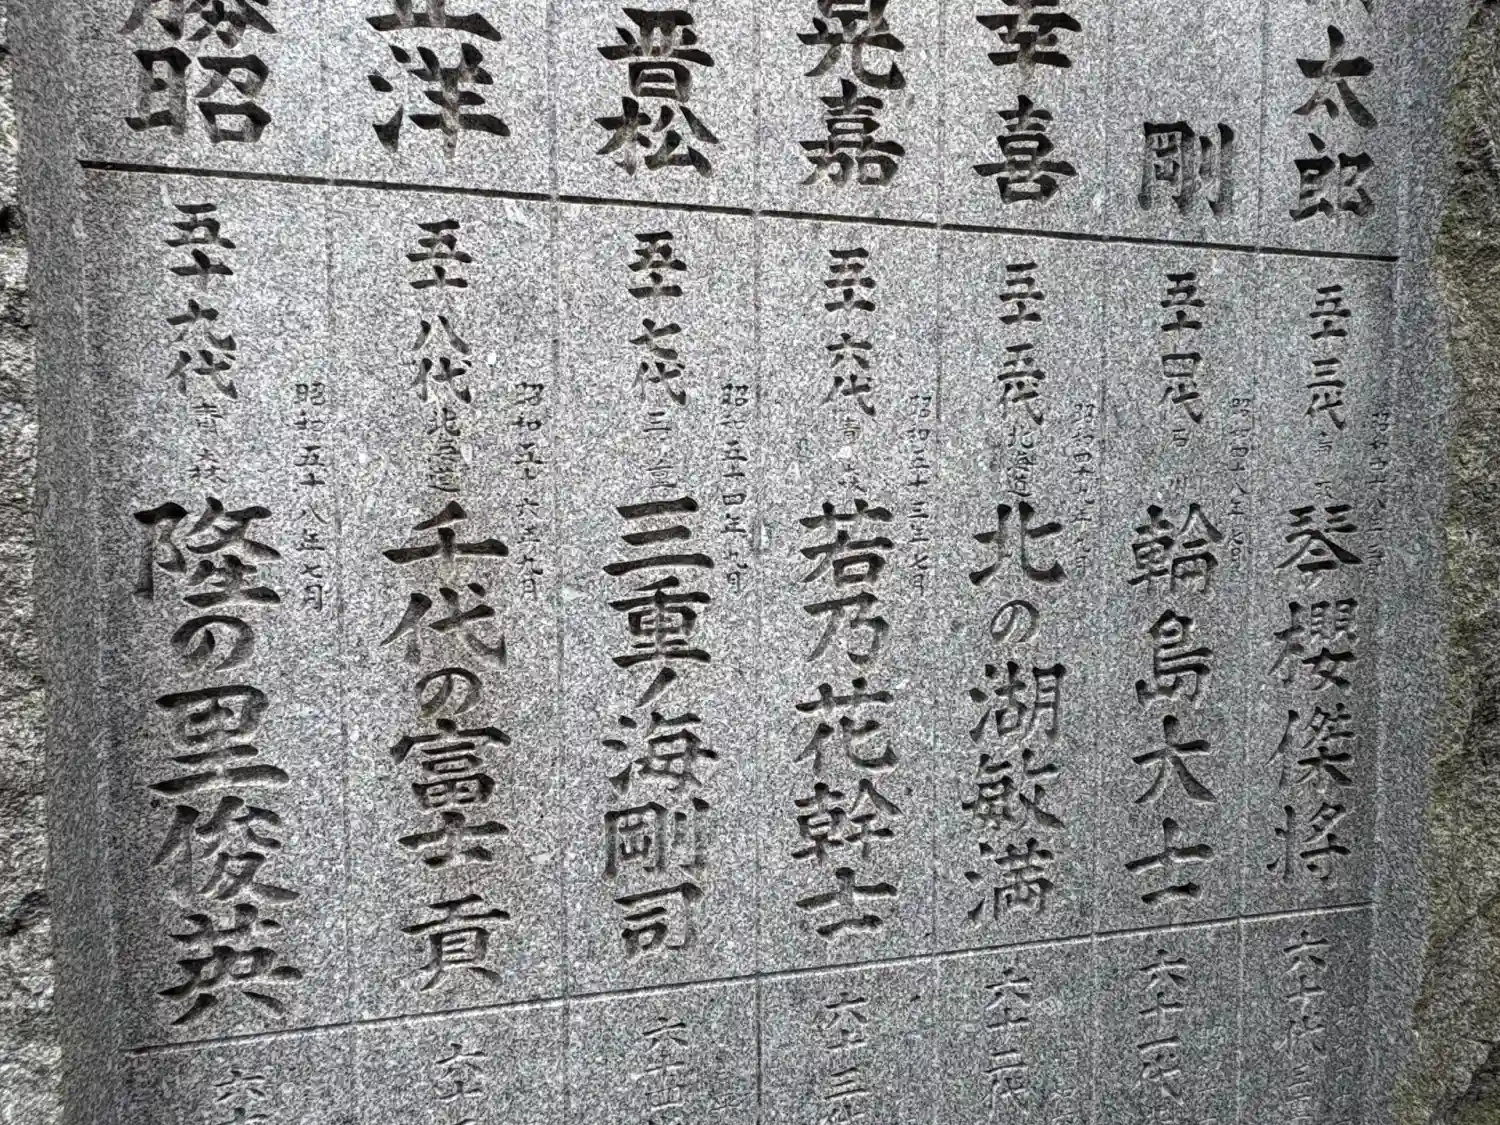 太郎
剛
幸喜
晃嘉
晋松
正洋
勝昭
五十三代
琴櫻傑將
五十四代 石川
昭和四十八年七月
輪島大士
五十五代 北海道
昭和四十九年九月
北の湖敏満
五十六代 青森
昭和五十三年七月
若乃花幹士
五十七代 三重
昭和五十四年九月
三重ノ海剛司
五十八代 北海道
昭和五十六年九月
千代の富士貢
五十九代 青森
昭和五十八年七月
隆の里俊英
六十代
六十一代
六十二代
六十三代
六十四
六十
六十